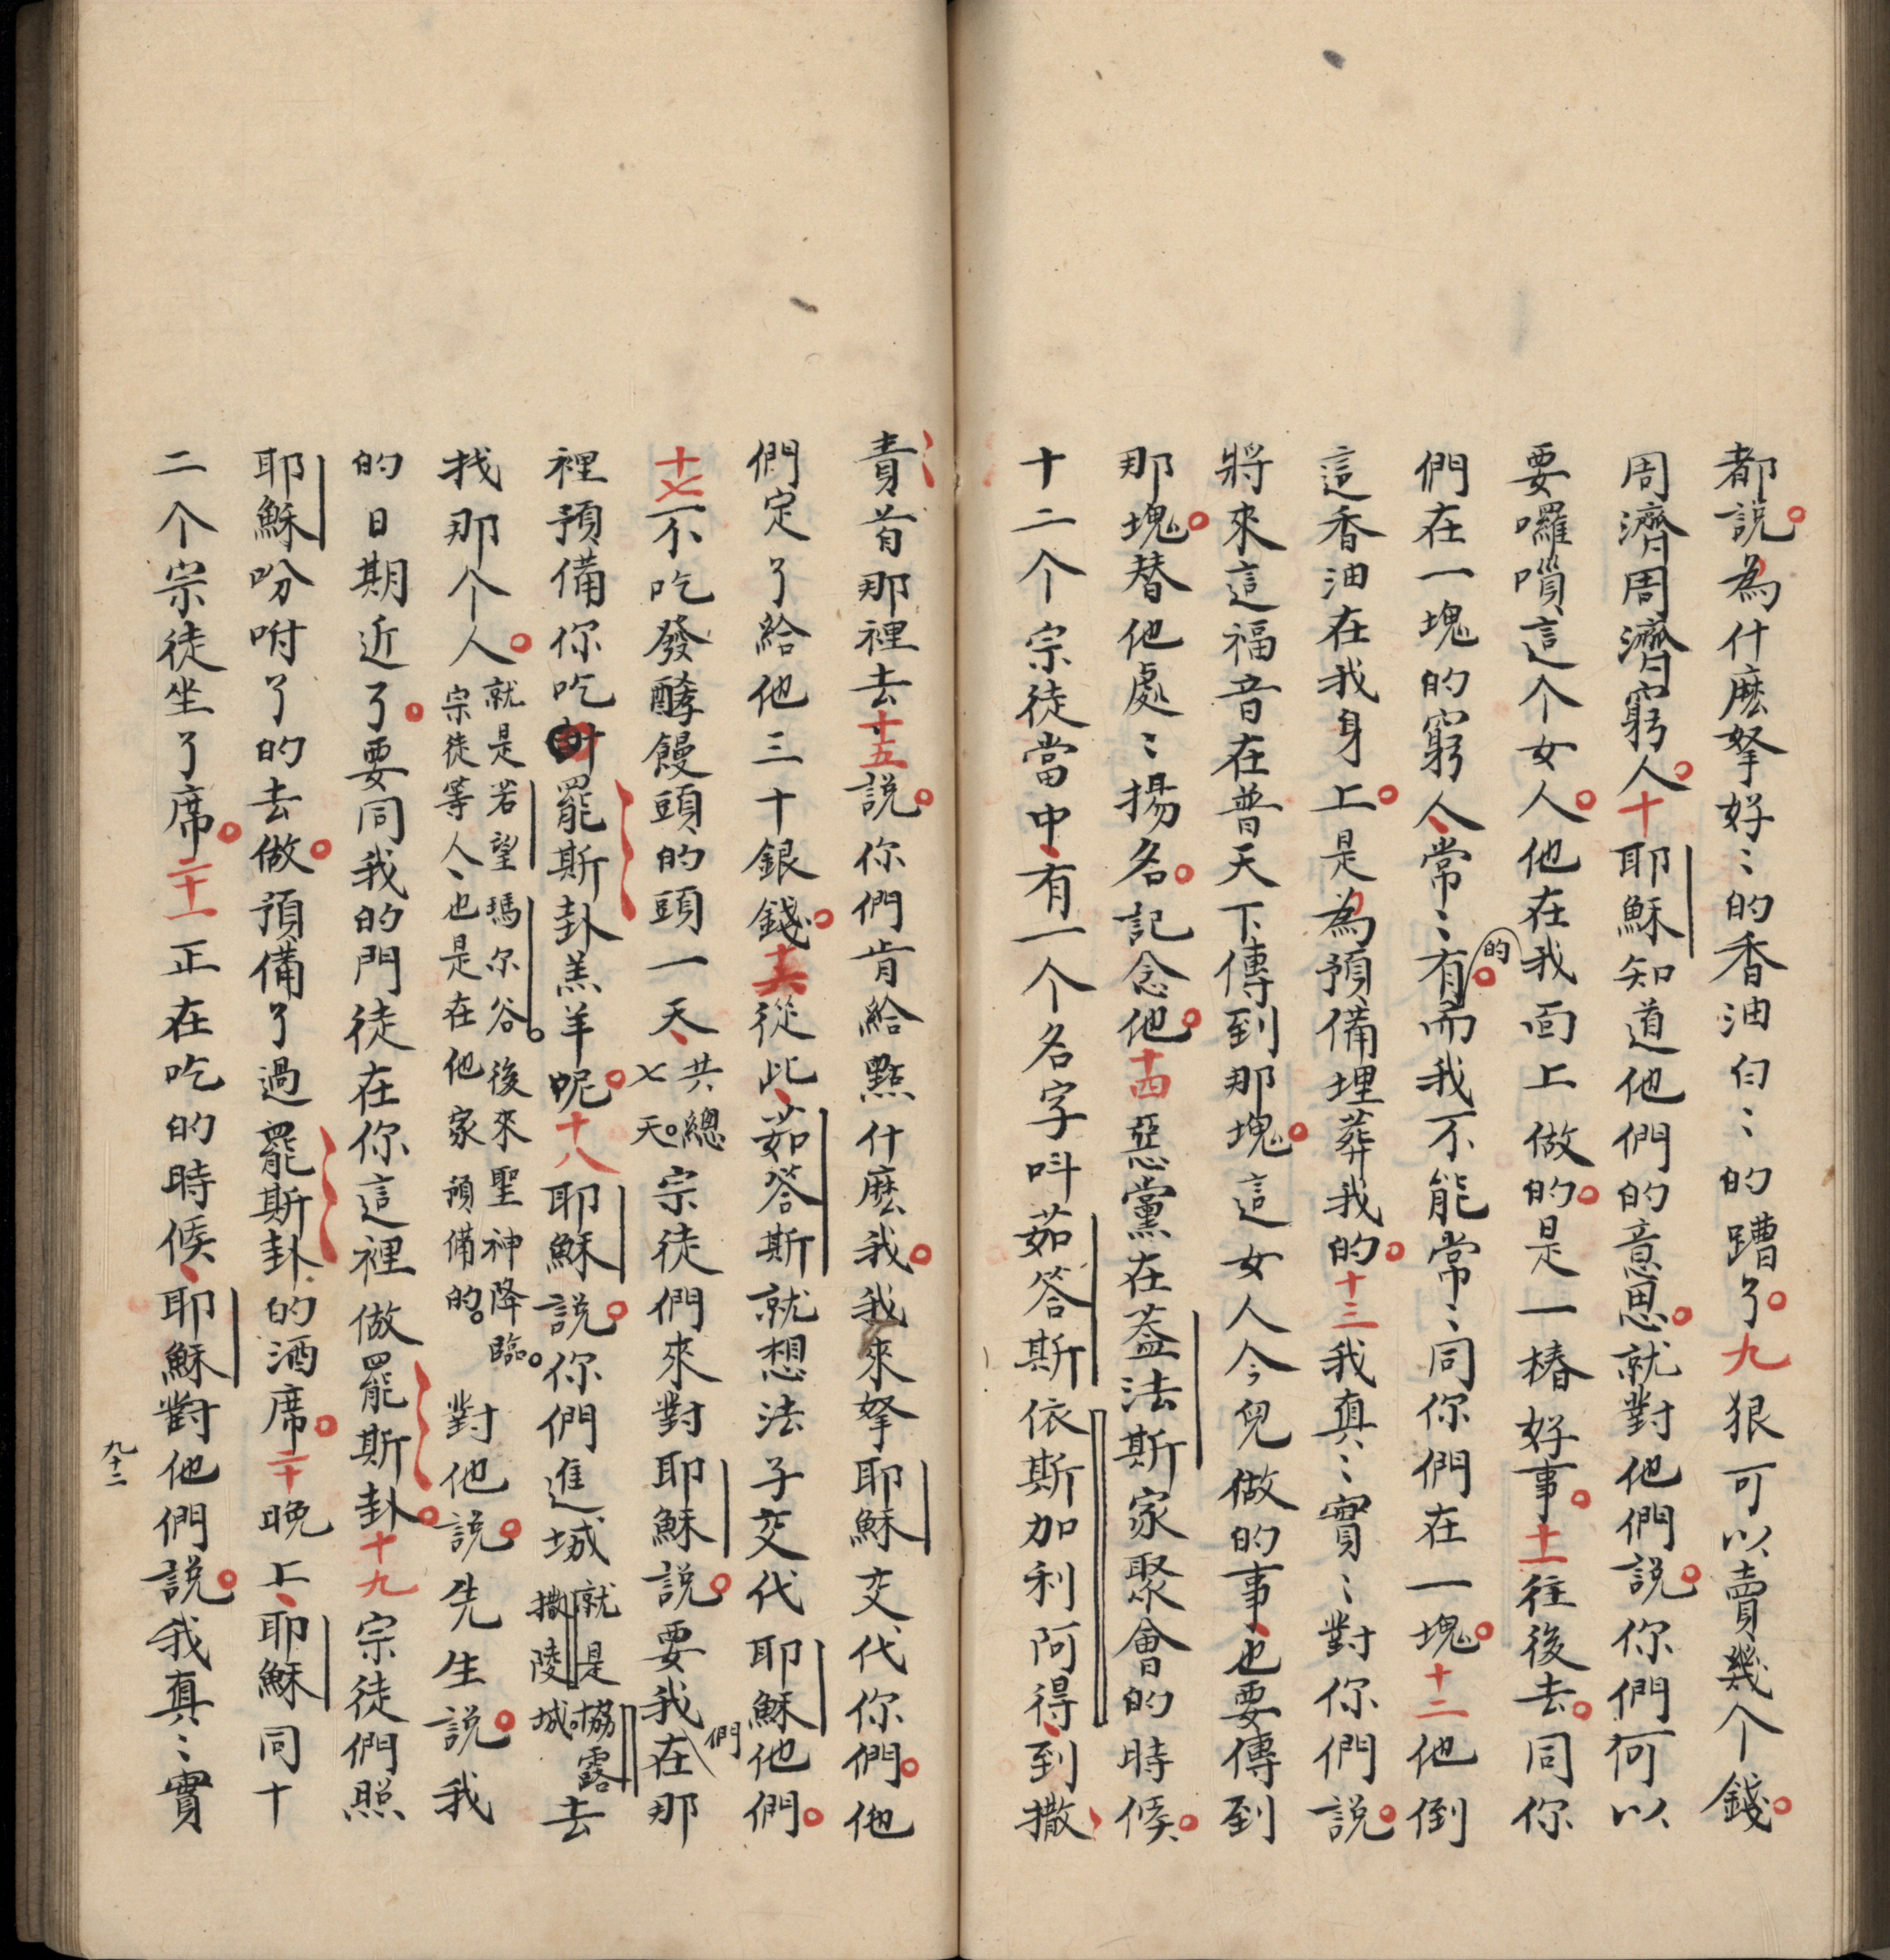 都説。為什麽拏好〻的香油白〻的蹧了。九狠可以賣幾个錢。
周濟周濟窮人。十耶穌知道他們的意思。就對他們説。你們何以
要囉嗩這个女人。他在我面上做的。是一樁好事。十一往後去。同你
們在一塊的窮人、常〻有的。而我不能常〻同你們在一塊。十二他倒
這香油在我身上。是為預備埋葬我的。十三我真〻實〻對你們説。
將來這福音在普天下傳到那塊。這女人今兒做的事、也要傳到
那塊。替他處〻揚名。記念他。十四惡黨在葢法斯家聚會的時候。
十二个宗徒當中、有一个名字呌茹答斯依斯加利阿得、到撒
責首那裡去十五説。你們肯給點什麽我。我來拏耶穌交代你們。他
們定了給他三十銀錢。十六從此、茹答斯就想法子交代耶穌他們。
十七不吃發酵饅頭的頭一天、共總七天。宗徒們來對耶穌説。要我們在那
裡預備你吃罷斯卦羔羊呢。十八耶穌説。你們進城就是協露撒陵城。去
找那个人。就是若望瑪尔谷。後來聖神降臨。宗徒等人、也是在他家預備的。對他説。先生説。我
的日期近了。要同我的門徒在你這裡做罷斯卦。十九宗徒們照
耶穌吩咐了的去做。預備了過罷斯卦的酒席。二十晚上、耶穌同十
二个宗徒坐了席。二十一正在吃的時候、耶穌對他們説。我真〻實
九十二